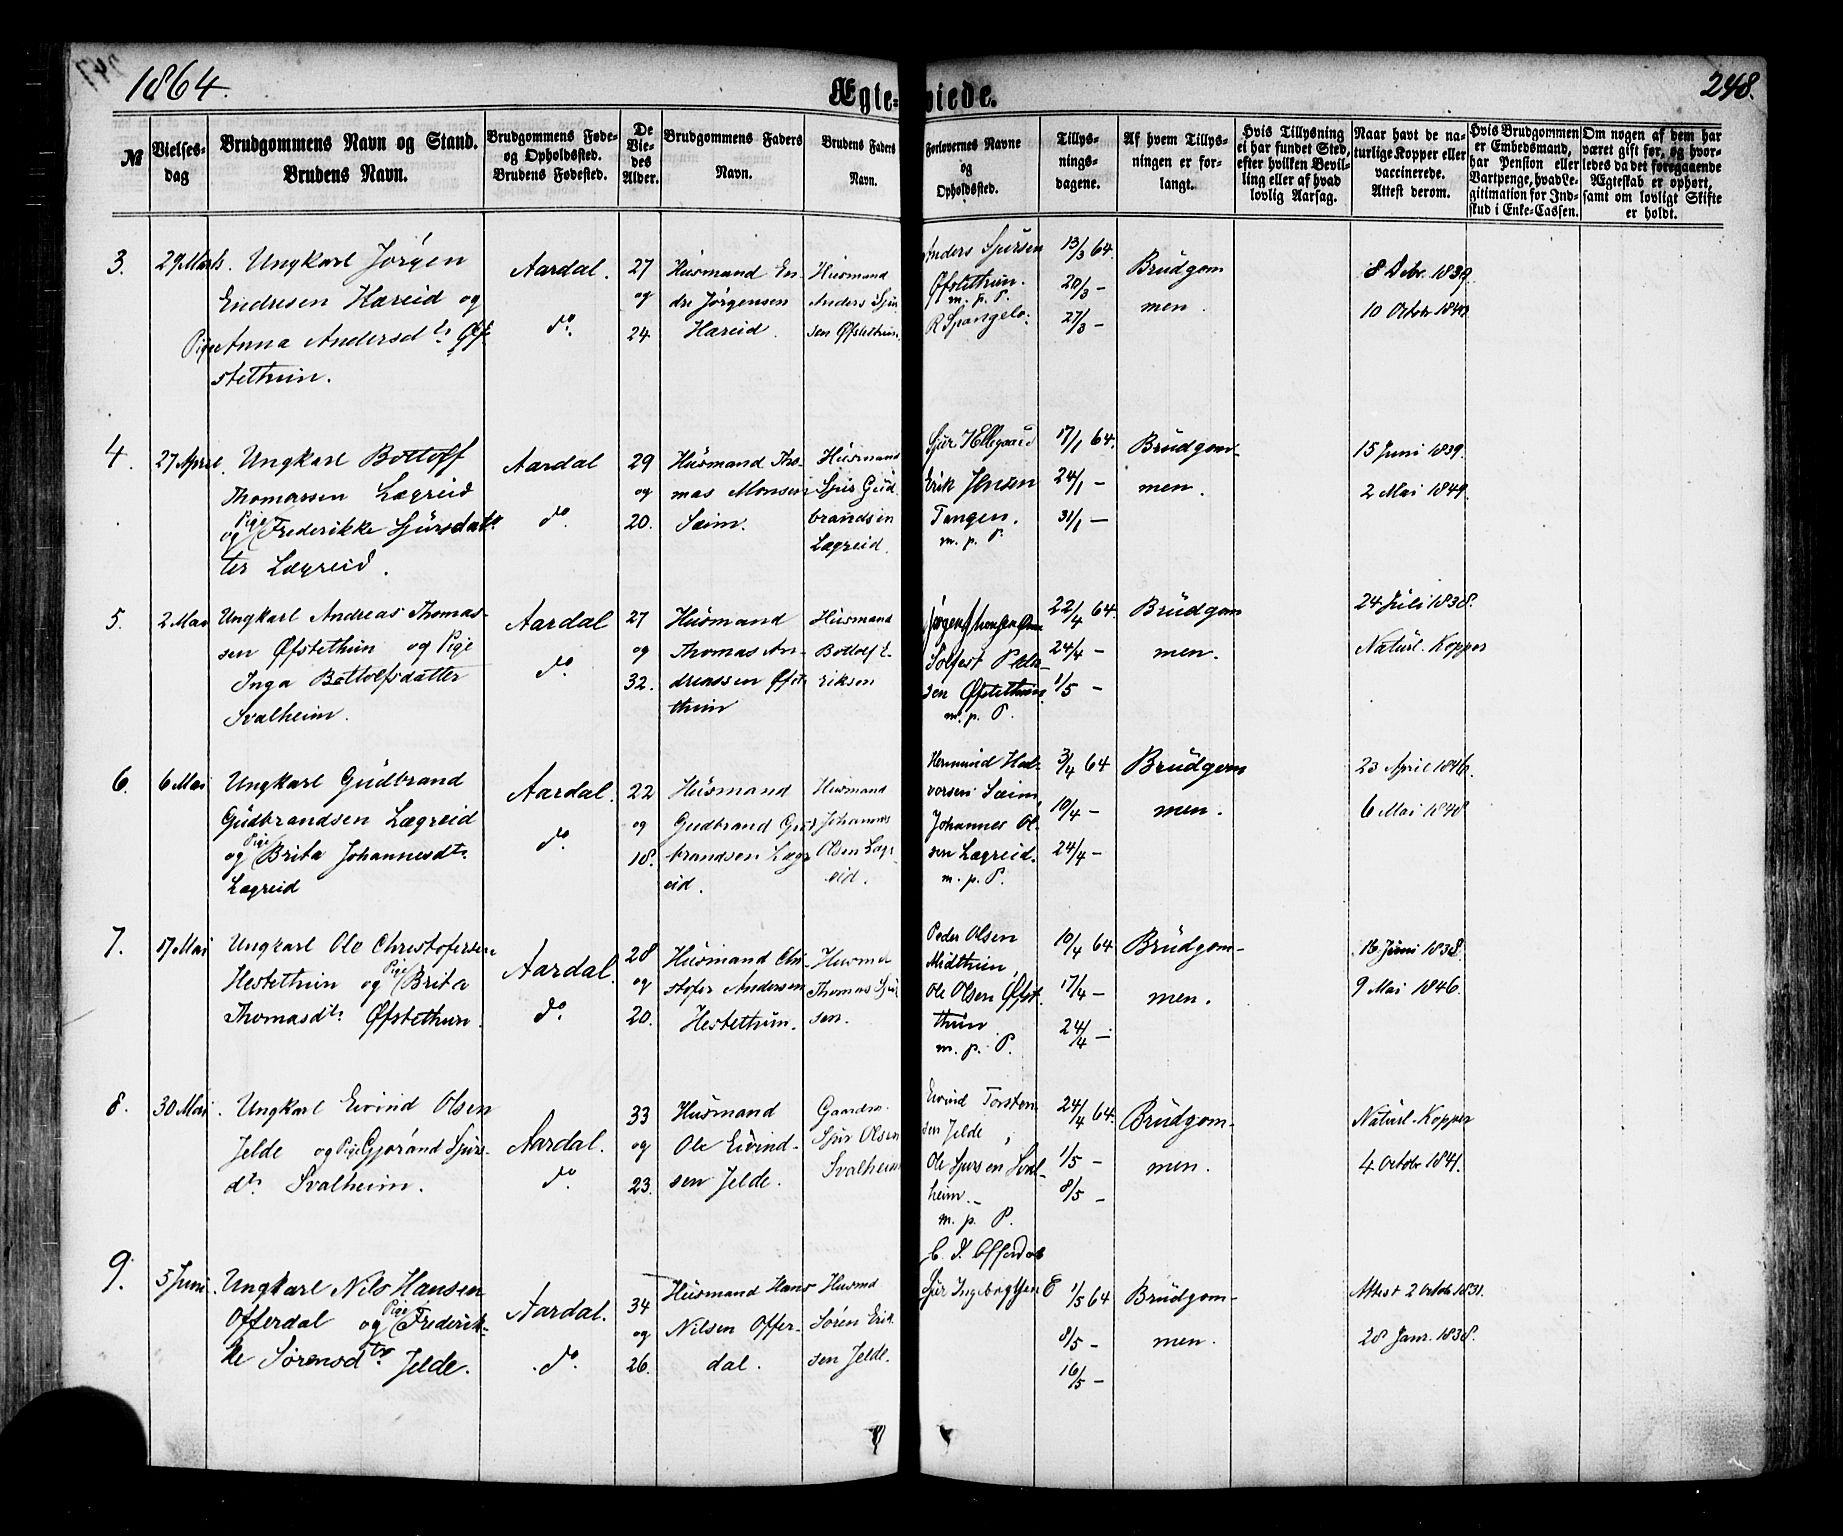 1864.
Ægte- viede.
248.
№
Vielses-
dag
Brudgommens Navn og Stand.
Brudens Navn.
Brudgommens Føde-
og Opholdssted.
Brudens Fødested.
De
Vie-
des
Alder.
Brudgommens Faders
Navn.
Brudens Faders
Navn.
Forlovernes Navne
og
Opholdssted.
Tillys-
nings-
dagene.
Af hvem Tillys-
ningen er for-
langt.
Hvis Tillysning
ei har fundet Sted,
efter hvilken Bevil-
ling eller af hvad
lovlig Aarsag.
Naar havt de na-
turlige Kopper eller
vaccinerede.
Attest derom.
Hvis Brudgommen
er Embedsmand,
har Pension eller
Vartpenge, hvad Le-
gitimation for Ind-
skud i Enke-Cassen.
Om nogen af dem har
været gift før, og hvor-
ledes da det foregaaende
Ægteskab er ophørt,
samt om lovligt Skifte
er holdt.
3.
29 Marts.
Ungkarl Jørgen
Endresen Hæreid og
Pige Anna Andersdtr Øf-
stethun.
Aardal.
do.
27
og
24
Husmand En-
dre Jørgensen
Hæreid.
Husmand
Anders Sju-
sen Øfstethun.
Anders Sjursen
Øfstethun.
m. p. P.
R Spangelo.
13/3 64.
20/3 —
27/3 —
Brudgom
men.
8 Debr. 1839.
10 Octobr 1840.
4.
27 April.
Ungkarl Bottolf
Thomassen Lægreid
og Pige Frederikke Sjursdat-
ter Lægreid.
Aardal
do.
29
og
20.
Husmand Tho-
mas Monsen
Sæim.
Husmand
Sjur Gud-
brandsen
Lægreid.
Sjur Hellegaard
Erik Jensen
Tangen.
m. p. P.
17/1 64.
24/1 —
31/1 —
Brudgom-
men.
15 Juni 1839.
2 Mai 1849.
5.
2 Mai
Ungkarl Andreas Thomas-
sen Øfstethun og Pige
Inga Bottolfsdatter
Svalheim.
Aardal
do.
27
og
32.
Husmand
Thomas An-
dreassen Øfste-
thun
Husmand
Bottolf E-
riksen
Solfest Peder-
sen Øfstethun.
m. p. P.
22/4 64.
24/4 —
1/5 —
Brudgom
men.
24 Juli 1838.
Naturl. Kopper
6.
6 Mai
Ungkarl Gudbrand
Gudbrandsen Lægreid
og Pige Brita Johannesdtr.
Lægreid
Aardal.
do.
22
og
18.
Husmand
Gudbrand Gud-
brandsen Lægr-
eid.
Husmand
Johannes
Olsen Læg-
eid.
Hermund Hal-
vorsen Sæim,
Johannes Ol-
sen Lægreid.
m. p. P.
3/4 64
10/4 —
24/4 —
Brudgom
men.
23 April 1846.
6 Mai 1848
7.
17 Mai
Ungkarl Ole Christofersen
Hestethun og Pige Brita
Thomasdtr Øfstethun.
Aardal.
do.
28
og
20.
Husmand Chri-
stofer Andersen
Hestethun.
Husmd
Thomas Sjur-
sen.
Peder Olsen
Midthun,
Ole Olsen Øfst-
thun
m. p. P.
10/4 64
17/4 —
24/4 —
Brudgom-
men.
16 Juni 1838.
9 Mai 1846.
8.
30 Mai.
Ungkarl Eivind Olsen
Jelde og Pige Gjørand Sjurs-
dtr. Svalheim.
Aardal.
do.
33
og
23.
Husmand
Ole Eivind-
sen Jelde.
Gaardm.
Sjur Olsen
Svalheim
Eivind Torsten-
sen Jelde,
Ole Sjursen Sval-
heim.
m. p. P.
24/4 64.
1/5 —
8/5 —
Brudgom-
men.
Naturl. Kopper
4 Octobr 1841.
9.
5 Juni.
Ungkarl Nils Hansen
Offerdal og Pige Frederik-
ke Sørensdtr Jelde.
Aardal.
do.
34
og
26.
Husmand Hans
Nilsen Offer-
dal.
Husmd
Søren Erik-
sen Jelde.
Offerdal
Sjur Ingebrigtsen E
1/5 64
8/5 —
16/5 —
Brudgom-
men.
Attest 2 Octob 1831.
28 Janr. 1838.